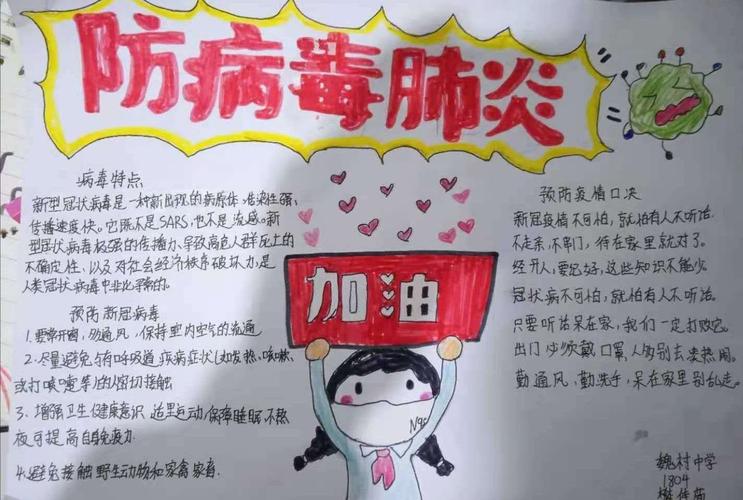 防病毒肺炎
病毒特点
新型冠状病毒是一种新出现的病原体，传染性强，
传播速度快。它既不是SARS，也不是流感。新
型冠状病毒极强的传播力、导致高危人群死亡的
不确定性，以及对社会经济秩序破坏力，是
人类冠状病毒中
预防新冠病毒
1.要常开窗，多通风，保持室内空气的流通
2.尽量避免与有呼吸道疾病症状（如发热，咳嗽，
或打喷嚏等）的人密切接触
3、增强卫生健康意识 适量运动、保障睡眠、不熬
夜可提高自身免疫力
4.避免接触野生动物和家禽家畜.
加油
N95
预防疫情口决
新冠疫情不可怕，就怕有人不听话.
不走亲，不串门，待在家里就对了。
经开人，要记好，这些知识不能少。
冠状病不可怕，就怕有人不听话。
只要听话呆在家，我们一定打败它。
出门必须戴口罩，人多别去凑热闹。
勤通风，勤洗手，呆在家里别乱走。
魏村中学
1804